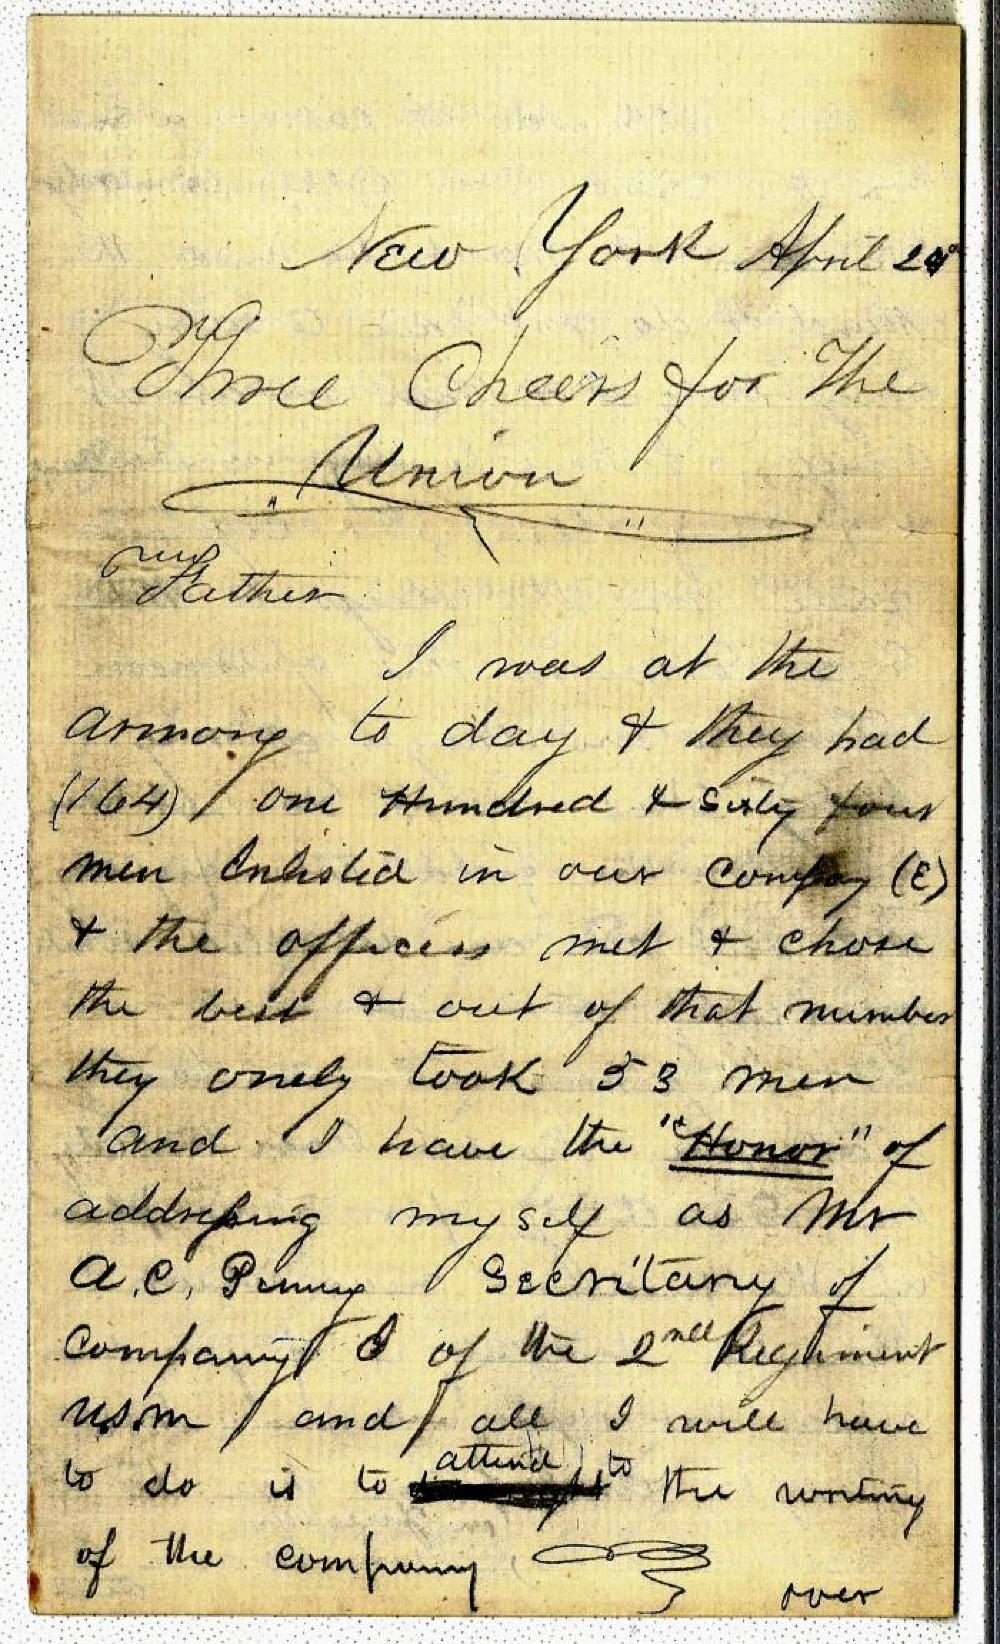 New York April 24
Three Cheers for The
Union
my
Father
I was at the
armory to day & they had
(164) one Hundred & Sixty four
men Enlisted in our Compay (E)
& the officers met & chose
the best & out of that number
they onely took 53 men
and I have the "Honor" of
addressing myself as Mr
A. C. Penny Secritary of
Company of the 2nd Regiment
USM and all I will have
to do is to attend to the writing
of the company
over